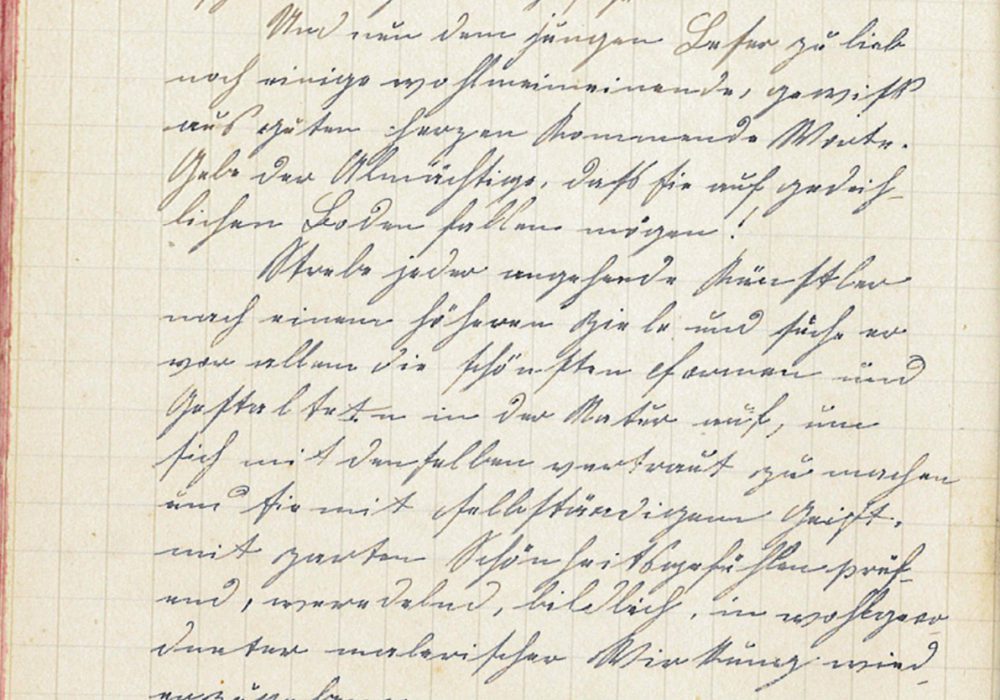 Und nun dem jungen Leser zu lieb
noch einige wohlmeinende, gewiss
aus guten Herzen kommende Worte.
Gebe der Almächtige, dass sie auf gedeih-
lichen Boden fallen mögen!
Strebe jeder angehende Künstler
nach einem höheren Ziele und suche er
vor allem die schönsten Formen und
Gestalteten in der Natur auf, um
sich mit denselben vertraut zu machen
und sie mit selbständigem Geist,
mit zarten Schönheitsgefühlen prüf-
end, veredelnd, bildlich, in wohlgeor-
dneter malerischer Wirkung wied-